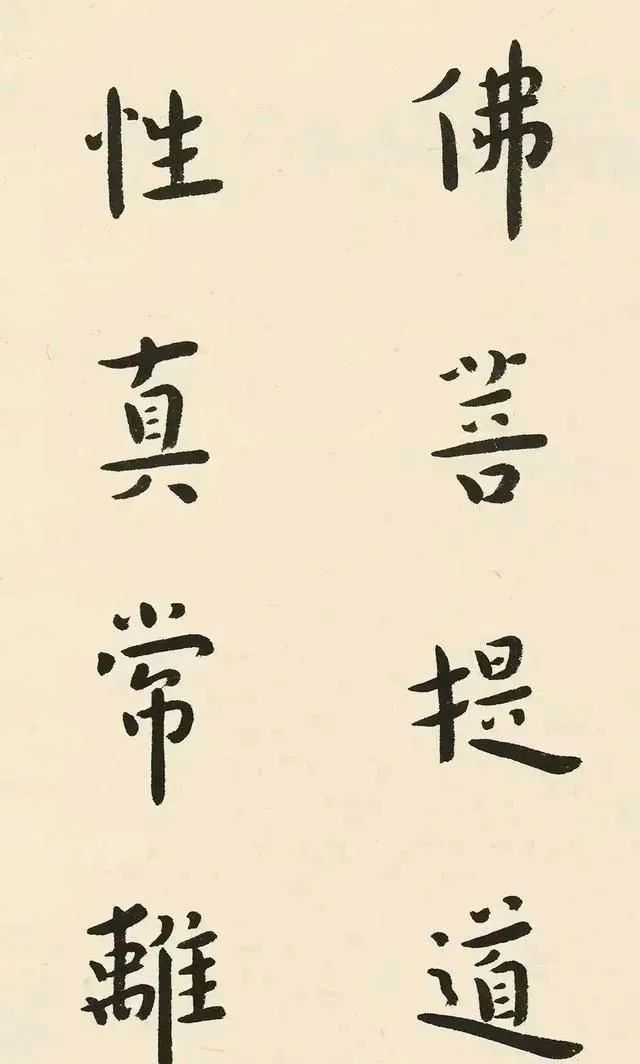 佛菩提道
性真常離